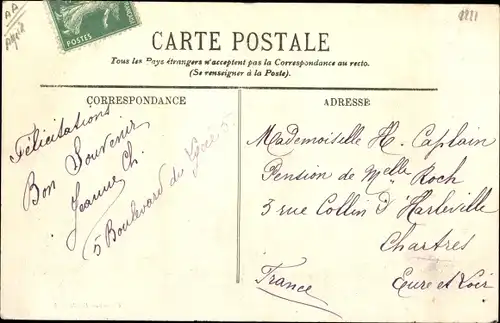 CARTE POSTALE
Tous les Pays étrangers n'acceptent pas la Correspondance au recto.
(Se renseigner à la Poste).
CORRESPONDANCE
Félicitations
Bon Souvenir
Jeanne Ch.
5 Boulevard du
ADRESSE
Mademoiselle H. Caplain
Pension de Melle Roch
3 rue Collin d'Harleville
Chartres
Eure et Loir
France